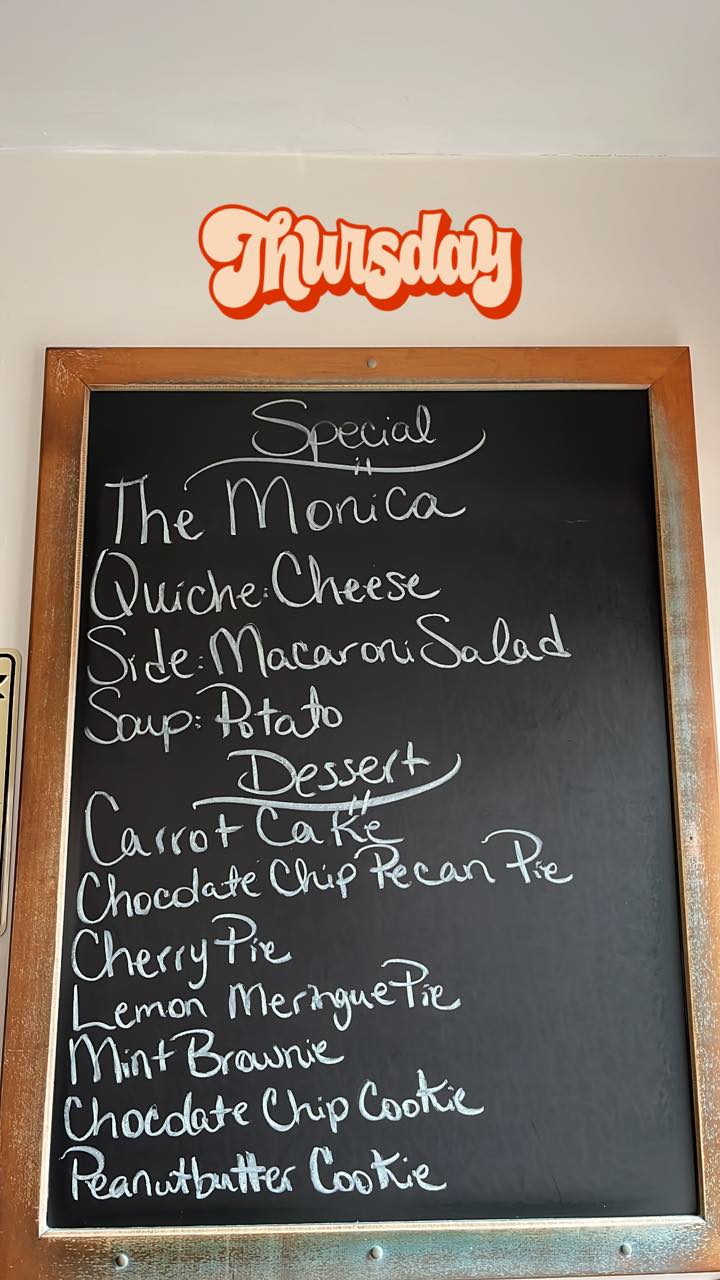 Thursday
Special
The Monica
Quiche: Cheese
Side: Macaroni Salad
Soup: Potato
Dessert
Carrot Cake
Chocolate Chip Pecan Pie
Cherry Pie
Lemon Meringue Pie
Mint Brownie
Chocolate Chip Cookie
Peanutbutter Cookie